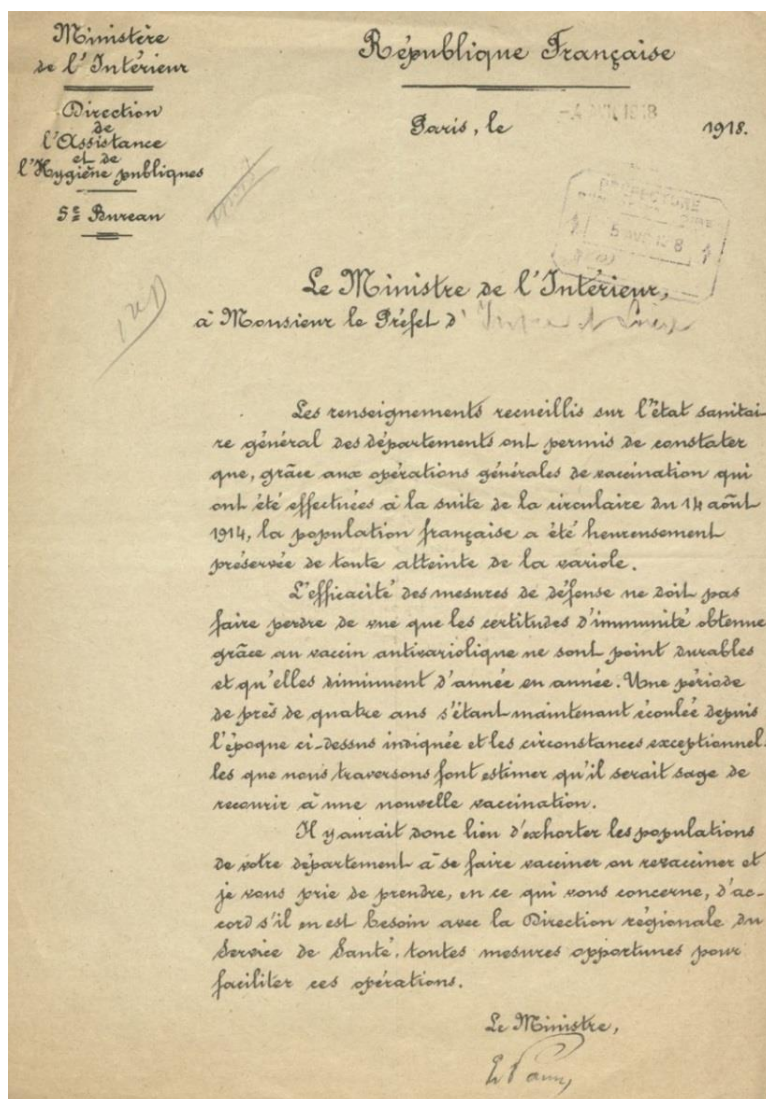 Ministère
de l'Intérieur
Direction
de
l'Assistance
et de
l'Hygiène publiques
5e Bureau
République Française
Paris, le 1918.
PRÉFECTURE
Le Ministre de l'Intérieur,
à Monsieur le Préfet d'Indre et Loire
Les renseignements recueillis sur l'état sanitai-
re général des départements ont permis de constater
que, grâce aux opérations générales de vaccination qui
ont été effectuées à la suite de la circulaire du 14 août
1914, la population française a été heureusement
préservée de toute atteinte de la variole.
L'efficacité des mesures de défense ne doit pas
faire perdre de vue que les certitudes d'immunité obtenue
grâce au vaccin antivariolique ne sont point durables
et qu'elles diminuent d'année en année. Une période
de près de quatre ans s'étant maintenant écoulée depuis
l'époque ci-dessus indiquée et les circonstances exceptionnel-
les que nous traversons font estimer qu'il serait sage de
recourir à une nouvelle vaccination.
Il y aurait donc lieu d'exhorter les populations
de votre département à se faire vacciner ou revacciner et
je vous prie de prendre, en ce qui vous concerne, d'ac-
cord s'il en est besoin avec la Direction régionale du
Service de Santé, toutes mesures opportunes pour
faciliter ces opérations.
Le Ministre,